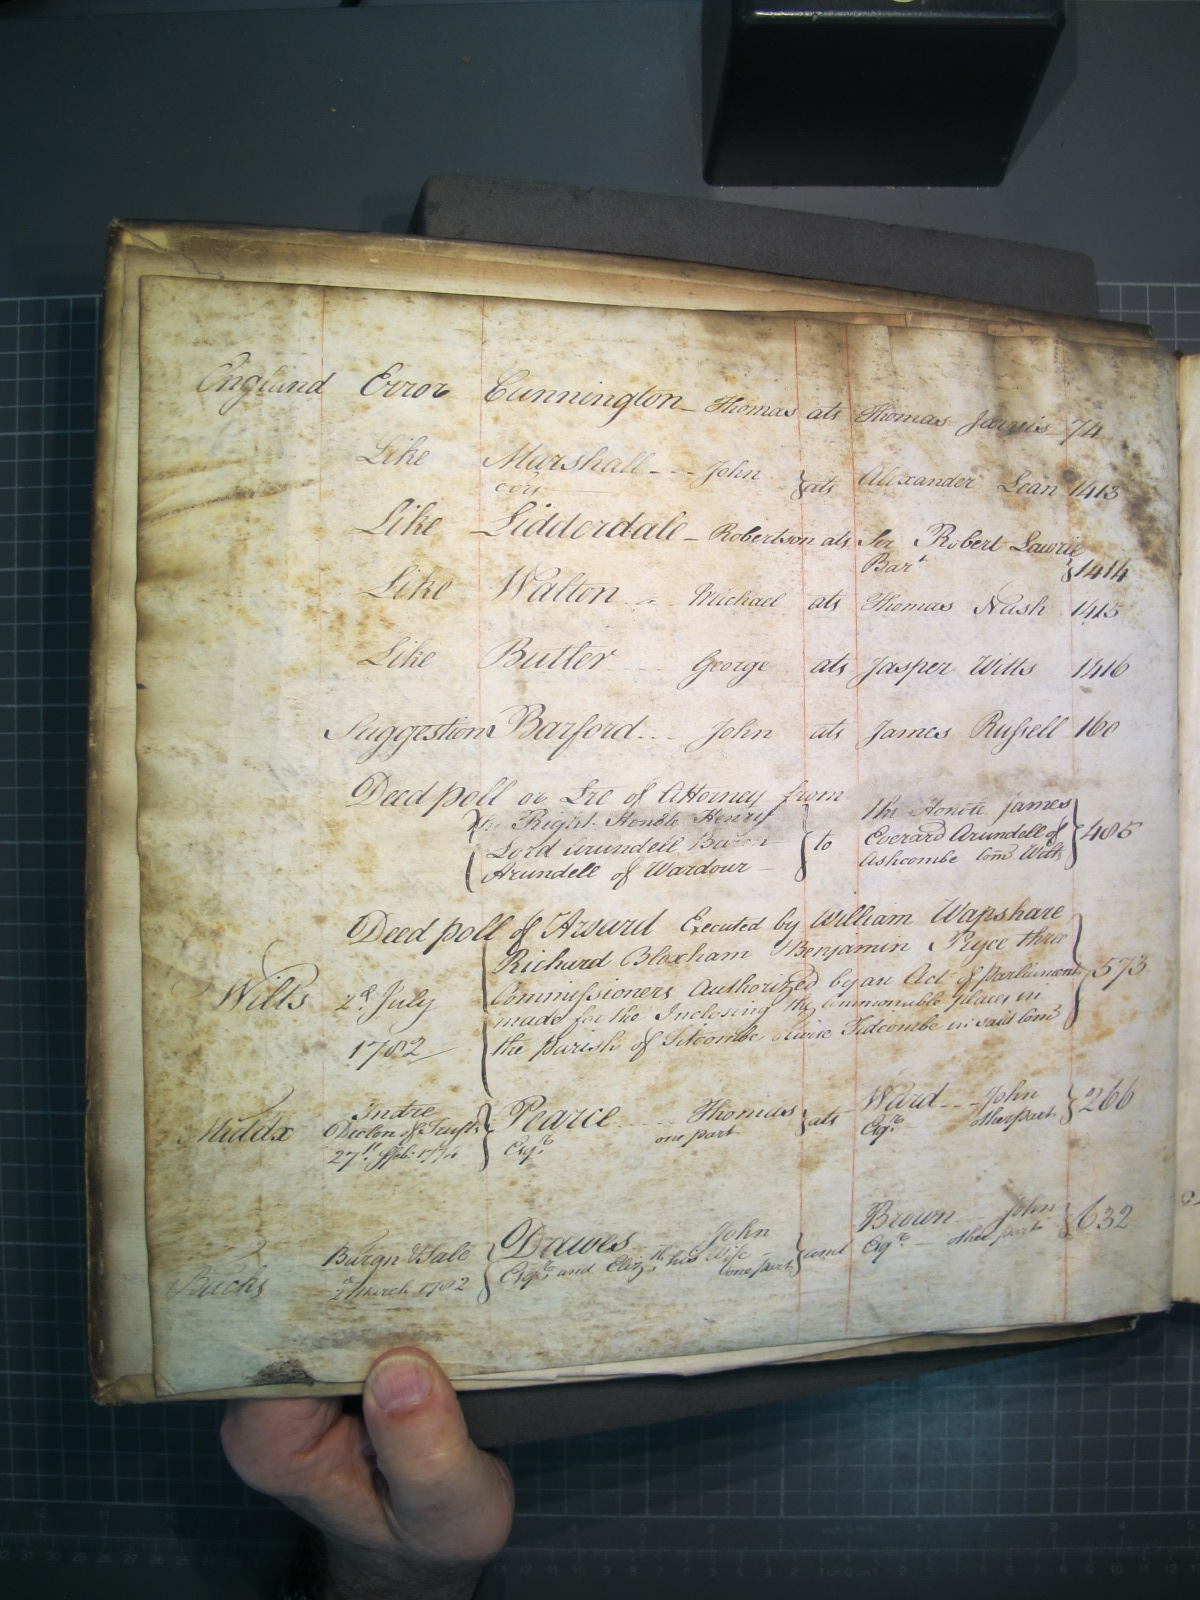 England Error Cunnington - Thomas ats Thomas Jarvis 74
Like Marshall - - - John ats Alexander Lean 1413
Like Lidderdale - Robertson ats Sir Robert Lawrie
Bart 1414
Like Walton Michael ats Thomas Nash 1415
Like Butler George ats Jasper Wilts 1416
Suggestion Barford John ats James Russell 160
Deed poll or Lre of Attorney from
the Right Honble Henry
Lord Arundell Baron
Arundell of Wardour to the Honble James
Everard Arundell of
Ashcombe Com Wilts 485
Deed poll of Award Executed by William Wapshare
Richard Bloxham & Benjamin Pryce three
Commissioners Authorized by an Act of Parliament 573
Wilts 2d July made for the Inclosing the Commonable places in
1782 the Parish of Titcombe Tidcombe in said Com
Middx Indre Pearce Thomas ats Ward John 266
one part Esqr other part
Esqr
Bucks Bargn & Sale Dawes John and Brown John 632
March 1782 Esqr and Eliz. his Wife one part Esqr other part